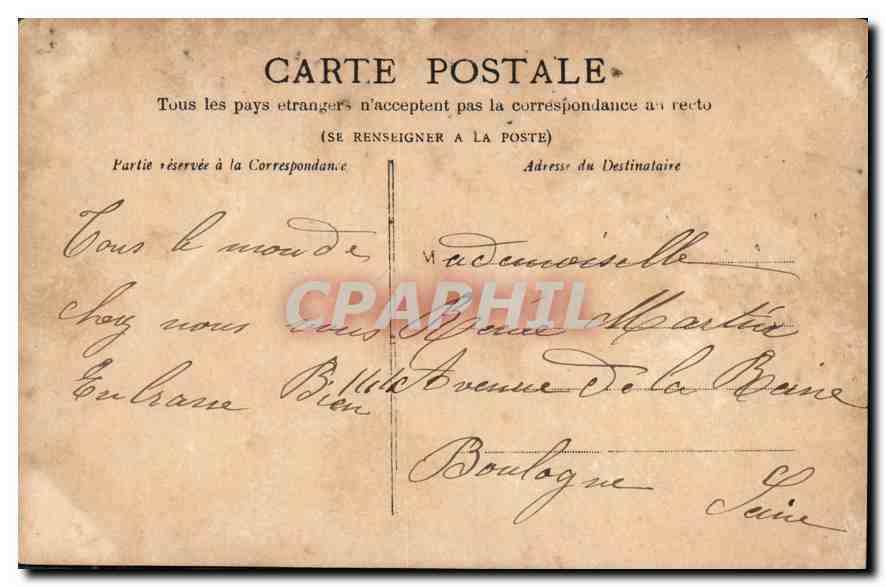 CARTE POSTALE
Tous les pays etrangers n'acceptent pas la correspondance au recto
(SE RENSEIGNER A LA POSTE)
Partie réservée à la Correspondance
Adresse du Destinataire
Tous le monde
chez nous vous
Enbrane Bien
Mademoiselle
Renée Martin
Avenue de la Reine
Boulogne
Seine
CPAPHIL